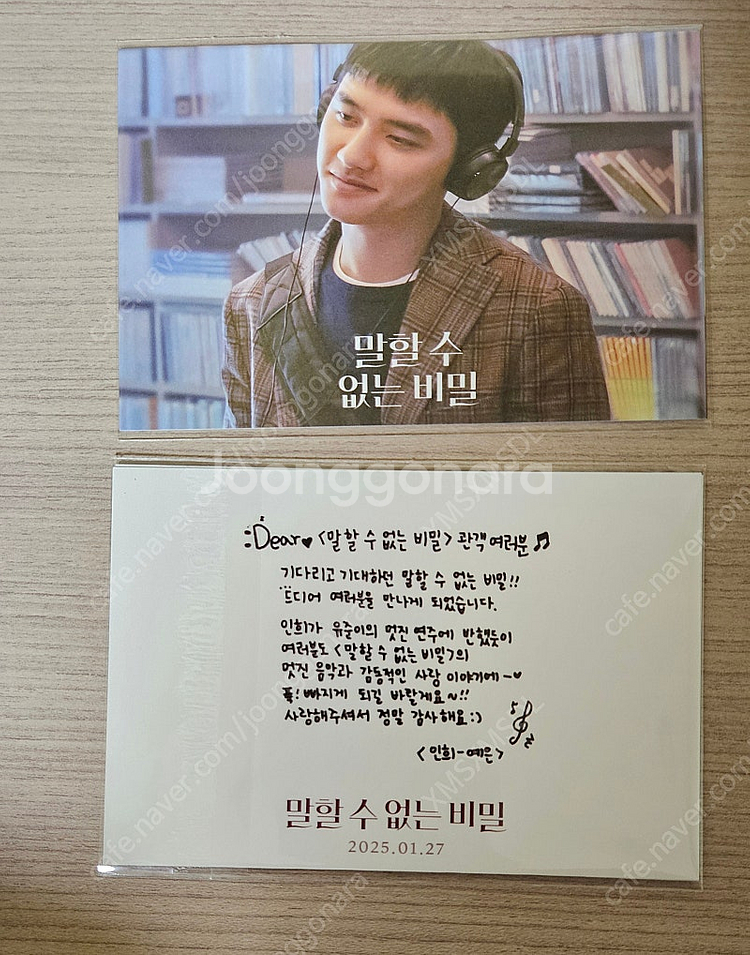 말할 수
없는 비밀
Joonggonara
Dear♥ <말할 수 없는 비밀> 관객 여러분♫
기다리고 기대하던 말할 수 없는 비밀!!
드디어 여러분을 만나게 되었습니다.
인희가 유준이의 멋진 연주에 반했듯이
여러분도 <말할 수 없는 비밀>의
멋진 음악과 감동적인 사랑 이야기에~♥
푹! 빠지게 되길 바랄게요~!!
사랑해주셔서 정말 감사해요:)
<인희-예은>
말할 수 없는 비밀
2025.01.27
cafe.naver.com/joonggonara
XMSXMSDL